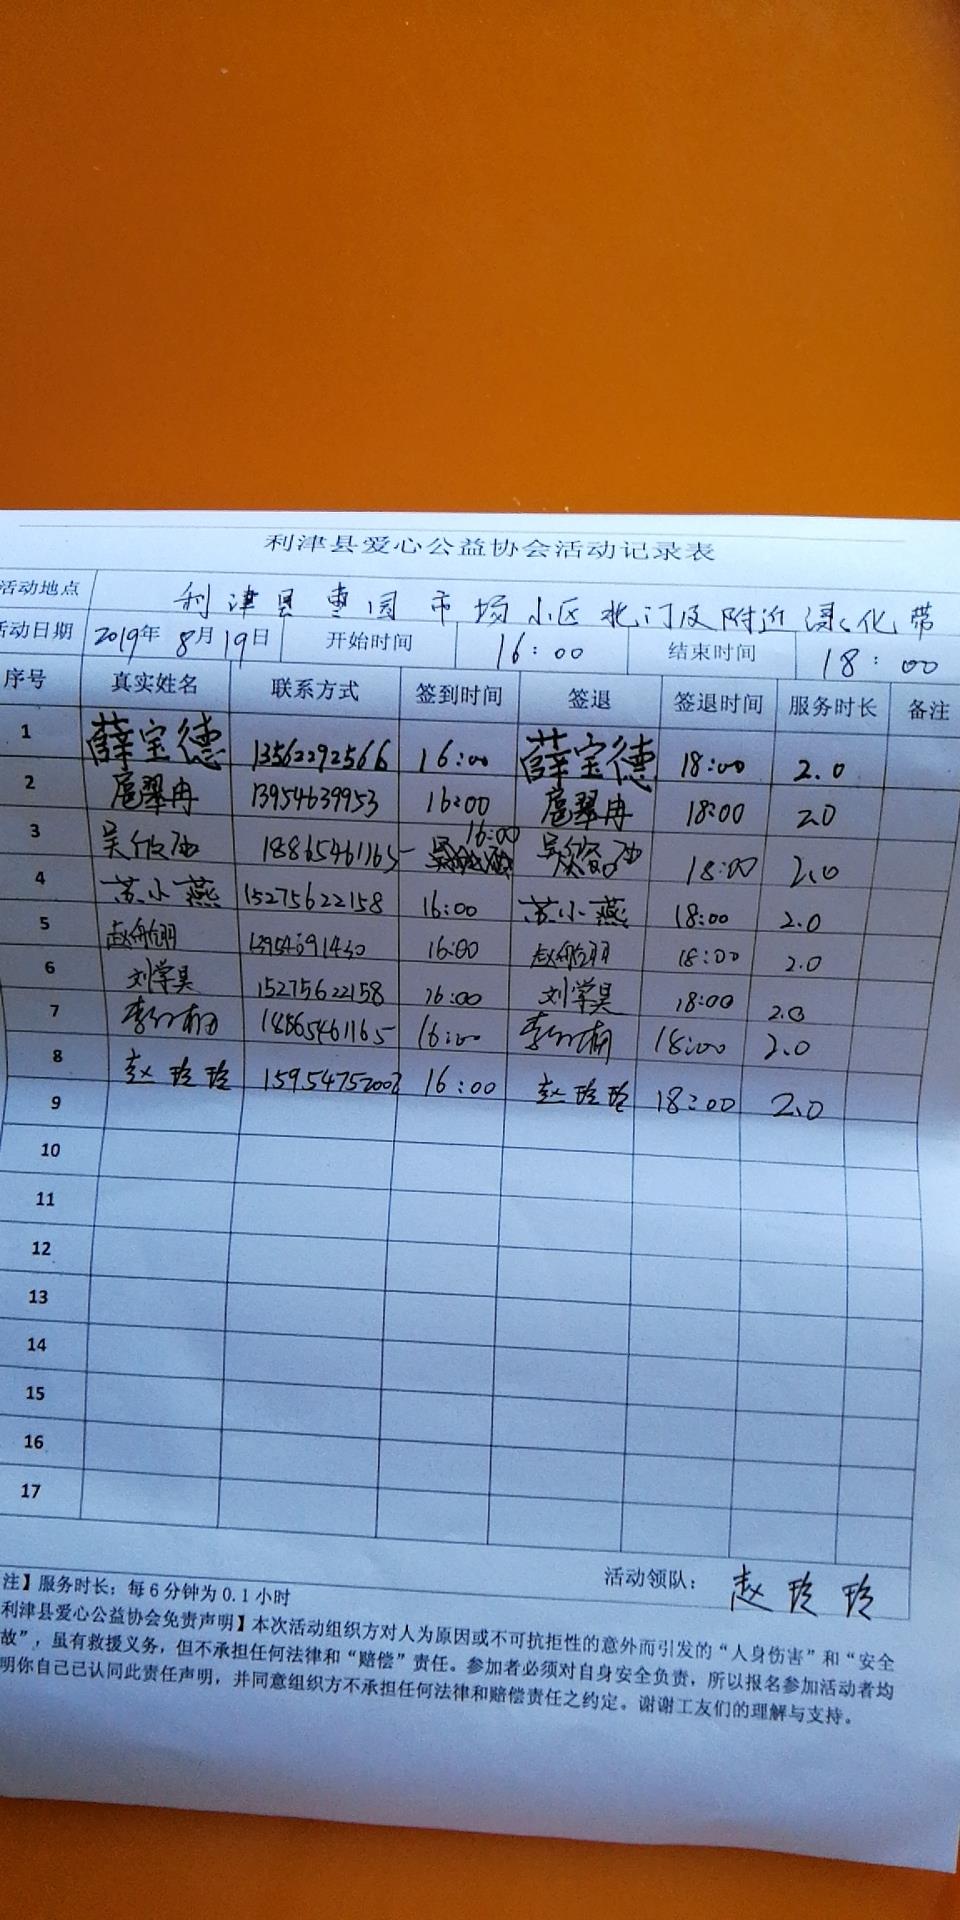 利津县爱心公益协会活动记录表
活动地点 利津县枣园市场小区北门及附近绿化带
活动日期 2019年8月19日 开始时间 16:00 结束时间 18:00
序号 真实姓名 联系方式 签到时间 签退 签退时间 服务时长 备注
1 薛宝德 13562292566 16:00 薛宝德 18:00 2.0
2 扈翠冉 13954639953 16:00 扈翠冉 18:00 2.0
3 18865461165 16:00 18:00 2.0
4 苏小燕 15275622158 16:00 苏小燕 18:00 2.0
5 16:00 18:00 2.0
6 刘学昊 15275622158 16:00 刘学昊 18:00 2.0
7 18865461165 16:00 18:00 2.0
8 赵玲玲 16:00 赵玲玲 18:00 2.0
9
10
11
12
13
14
15
16
17
活动领队: 赵玲玲
注】服务时长:每6分钟为0.1小时
利津县爱心公益协会免责声明】本次活动组织方对人为原因或不可抗拒性的意外而引发的“人身伤害”和“安全
故”,虽有救援义务,但不承担任何法律和“赔偿”责任。参加者必须对自身安全负责,所以报名参加活动者均
明你自己已认同此责任声明,并同意组织方不承担任何法律和赔偿责任之约定。谢谢工友们的理解与支持。